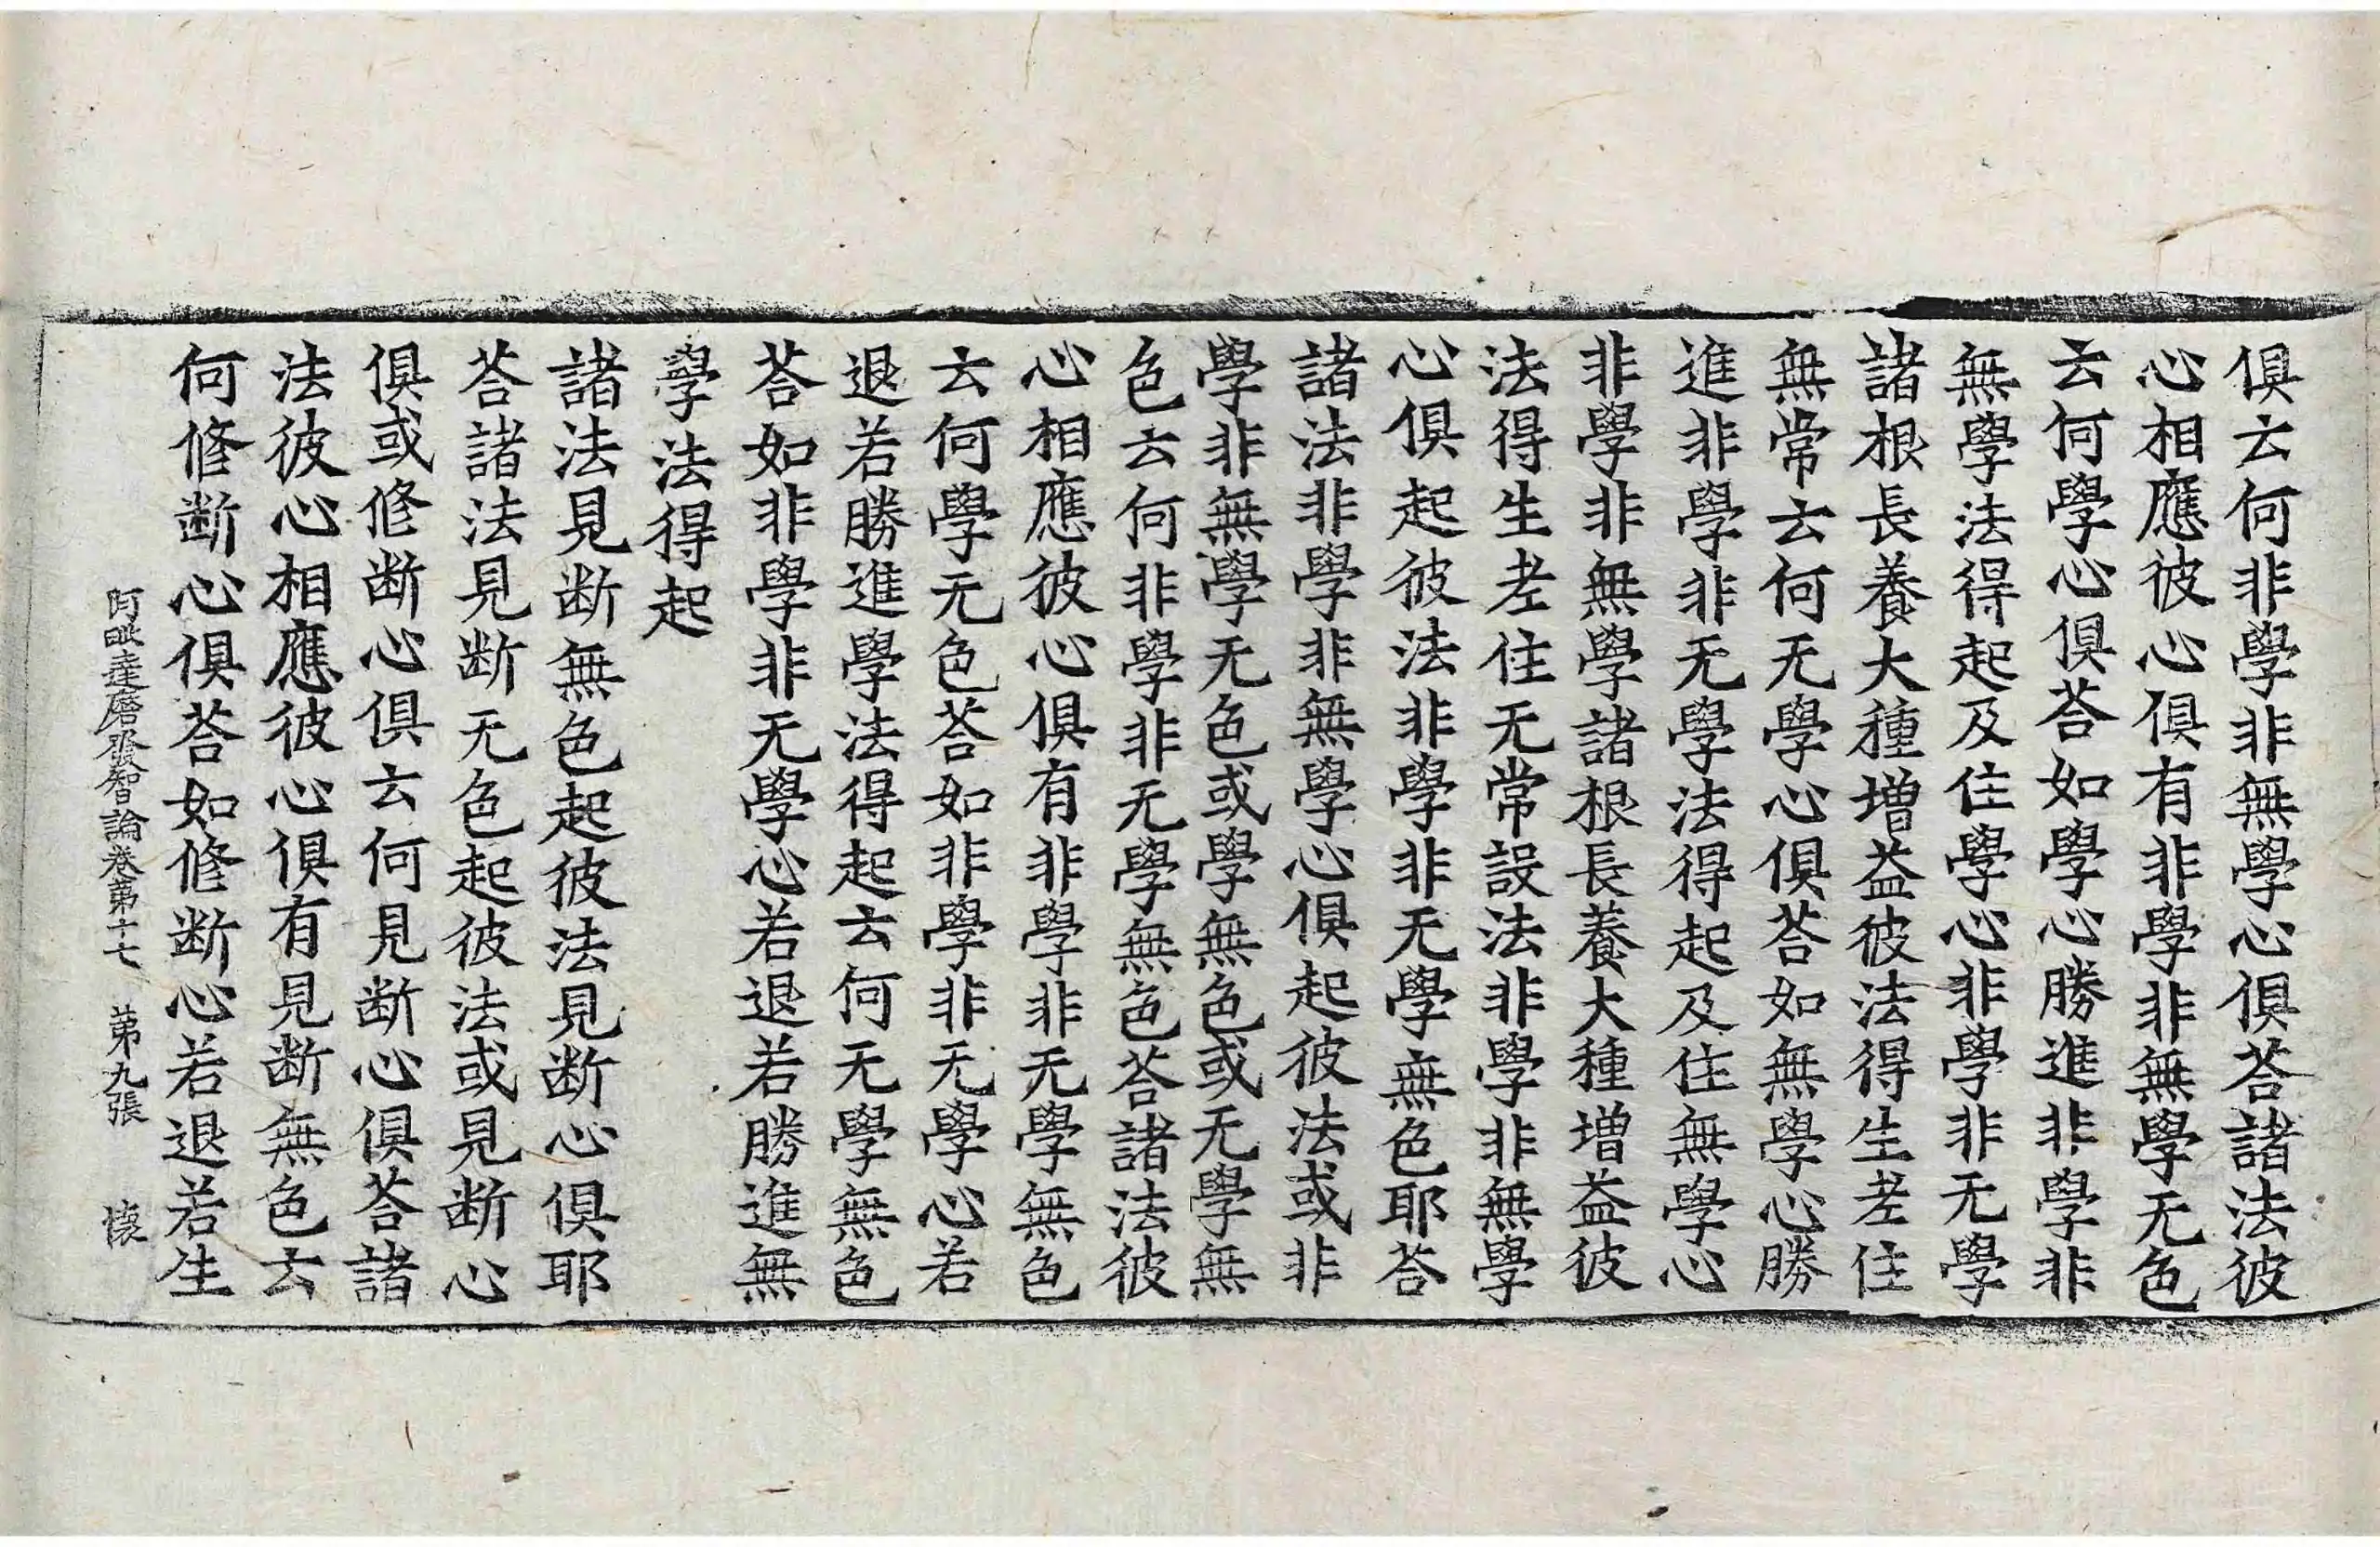 俱云何非學非無學心俱荅諸法彼
心相應彼心俱有非學非無學无色
云何學心俱荅如學心勝進非學非
無學法得起及住學心非學非无學
諸根長養大種增益彼法得生老住
無常云何无學心俱荅如無學心勝
進非學非无學法得起及住無學心
非學非無學諸根長養大種增益彼
法得生老住无常設法非學非無學
心俱起彼法非學非无學無色耶荅
諸法非學非無學心俱起彼法或非
學非無學无色或學無色或无學無
色云何非學非无學無色荅諸法彼
心相應彼心俱有非學非无學無色
云何學无色荅如非學非无學心若
退若勝進學法得起云何无學無色
荅如非學非无學心若退若勝進無
學法得起
諸法見断無色起彼法見断心俱耶
荅諸法見断无色起彼法或見断心
俱或修断心俱云何見断心俱荅諸
法彼心相應彼心俱有見断無色云
何修断心俱荅如修断心若退若生
阿毗達磨發智論卷第十七 第九張 懐